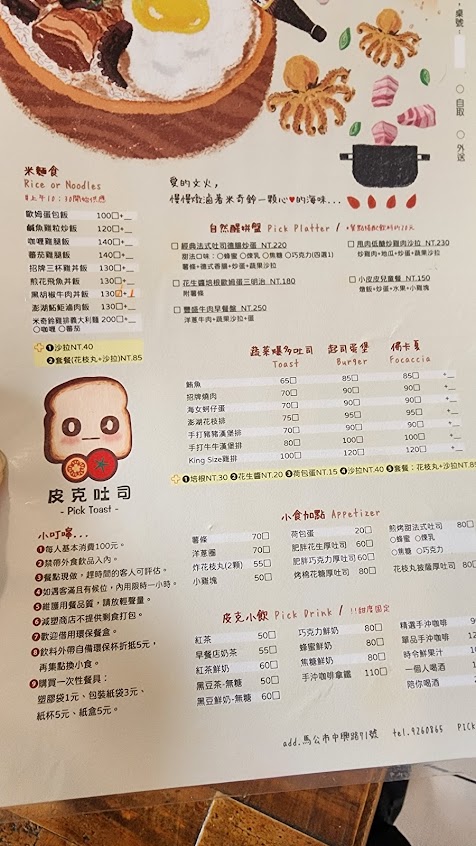 桌號:
○自取
○外送
米麵食
Rice or Noodles
上午10:30開始供應
歐姆蛋包飯 100□+__
鹹魚雞粒炒飯 120□+__
咖哩雞腿飯 140□+__
蕃茄雞腿飯 140□+__
招牌三杯雞丼飯 130□+__
煎花飛魚丼飯 130□+__
黑胡椒牛肉丼飯 130☑+1
澎湖鮖鮔滷肉飯 130□+__
米奇鈴雞排義大利麵 200□+__
○咖哩 ○蕃茄
➕❶沙拉NT.40
❷套餐(花枝丸+沙拉)NT.85
愛的文火,
慢慢燉滷著米奇鈴一顆心♥的海味...
自然醒拼盤 Pick Platter /
□ 經典法式吐司德腸炒蛋 NT.220
甜法口味:○蜂蜜 ○煉乳 ○焦糖 ○巧克力(四選1)
薯條+德式香腸+炒蛋+蔬果沙拉
□ 花生醬培根歐姆蛋三明治 NT.180
附薯條
□ 豐盛牛肉早餐盤 NT.250
洋蔥牛肉+蔬果沙拉+蛋
□ 甩肉低醣舒雞肉沙拉 NT.230
舒雞肉+地瓜+炒蛋+蔬果沙拉
□ 小皮皮兒童餐 NT.150
燉飯+炒蛋+水果+小雞塊
蔬菜爆多吐司 起司蛋堡 佛卡夏
Toast Burger Focaccia
鮪魚 65□ 85□ 85□ +__
招牌燒肉 70□ 90□ 90□ +__
海女蚵仔蛋 70□ 90□ 90□ +__
澎湖花枝排 75□ 95□ 95□ +__
手打豬豬漢堡排 70□ 90□ 90□ +__
手打牛牛漢堡排 80□ 100□ 100□ +__
King Size雞排 100□ 120□ 120□ +__
➕❶培根NT.30 ❷花生醬NT.20 ❸荷包蛋NT.15 ❹沙拉NT.40 ❺套餐:花枝丸+沙拉NT.85
皮克吐司
- Pick Toast -
小叮嚀...
❶每人基本消費100元。
❷禁帶外食飲品入內。
❸餐點現做,趕時間的客人可評估。
❹如遇客滿且有候位,內用限時一小時。
❺維護用餐品質,請放輕聲量。
❻減塑商店不提供剩食打包。
❼歡迎借用環保餐盒。
❽飲料外帶自備環保杯折抵5元,
再集點換小食。
❾購買一次性餐具:
塑膠袋1元、包裝紙袋3元、
紙杯5元、紙盒5元。
小食加點 Appetizer
薯條 70□
洋蔥圈 70□
炸花枝丸(2顆) 55□
小雞塊 50□
荷包蛋 20□
肥胖花生厚吐司 60□
肥胖巧克力厚吐司 60□
烤棉花糖厚吐司 80□
煎烤甜法式吐司 80□
○蜂蜜 ○煉乳
○焦糖 ○巧克力
花枝丸披薩厚吐司 80□
皮克小飲 Pick Drink / !!甜度固定
紅茶 50□
早餐店奶茶 55□
紅茶鮮奶 60□
黑豆茶-無糖 50□
黑豆鮮奶-無糖 60□
巧克力鮮奶 80□
蜂蜜鮮奶 80□
焦糖鮮奶 80□
手沖咖啡拿鐵 110□
精選手沖咖啡
單品手沖咖啡
時令鮮果汁
一個人喝酒
陪你喝酒
add.馬公市中興路91號 tel.9260865